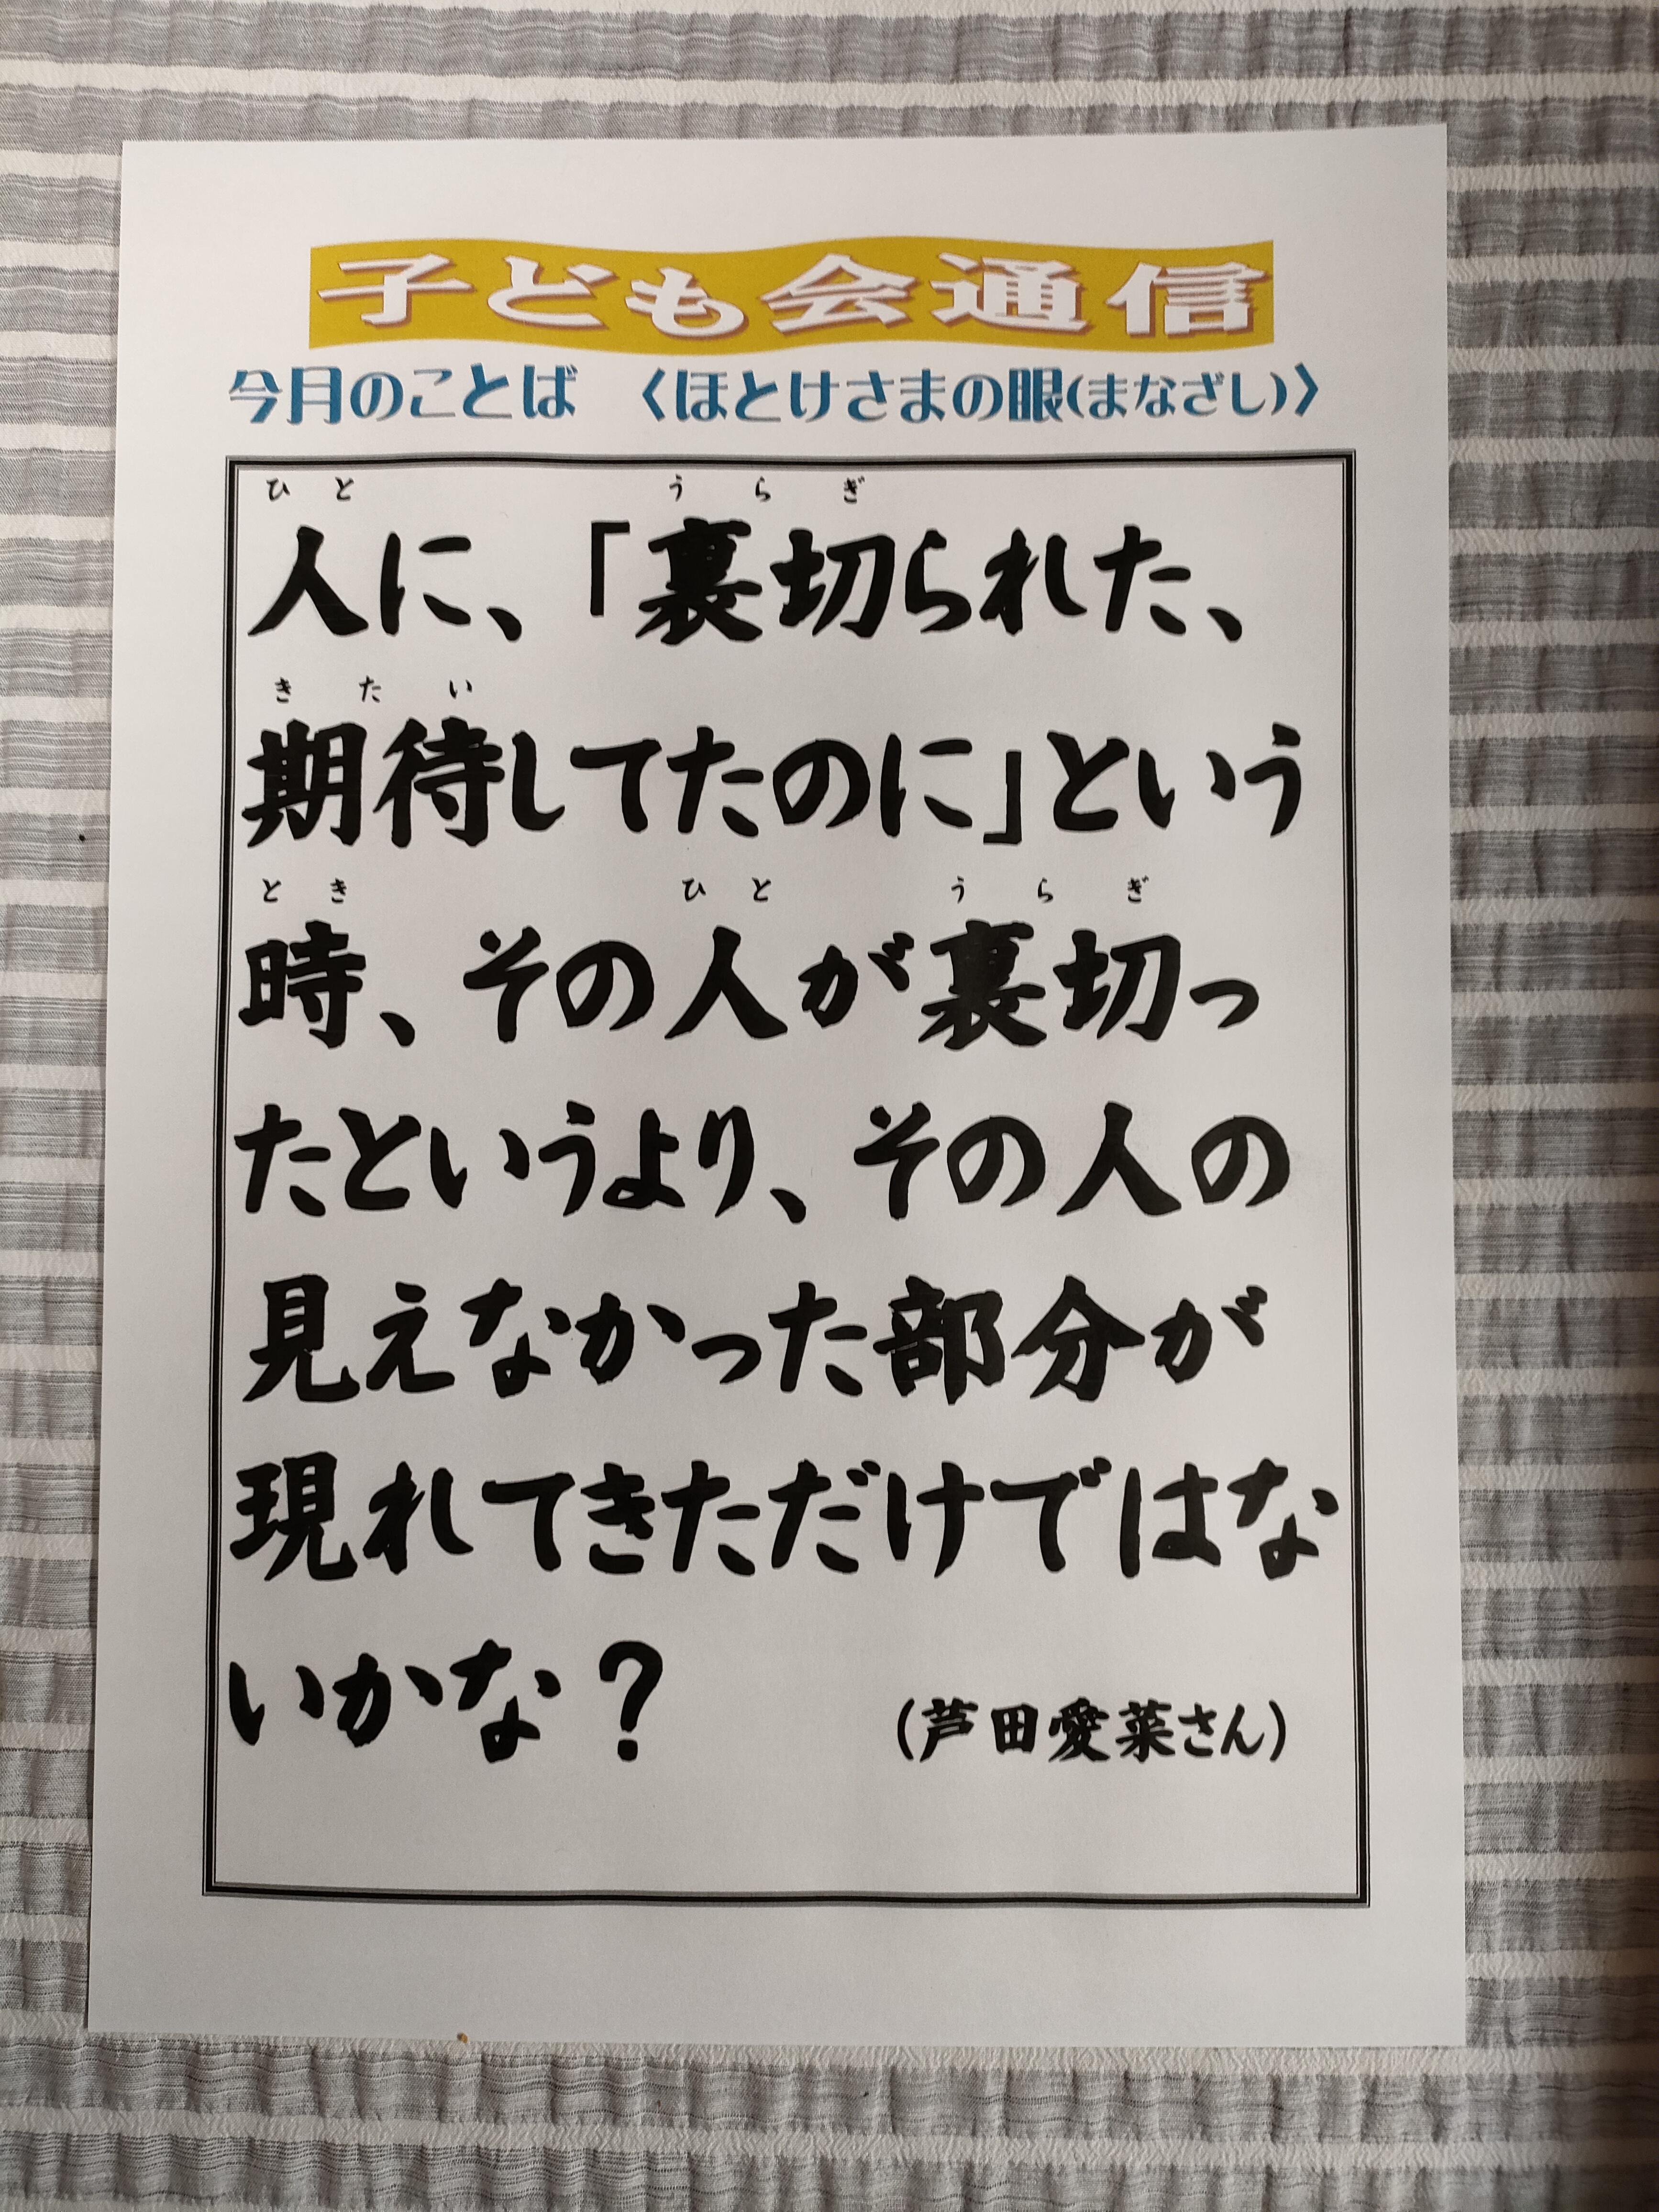 子ども会通信
今月のことば 〈ほとけさまの眼(まなざし)〉
ひと うらぎ
人に、「裏切られた、
きたい
期待してたのに」という
とき ひと うらぎ
時、その人が裏切っ
たというより、その人の
見えなかった部分が
現れてきただけではな
いかな？
(芦田愛菜さん)